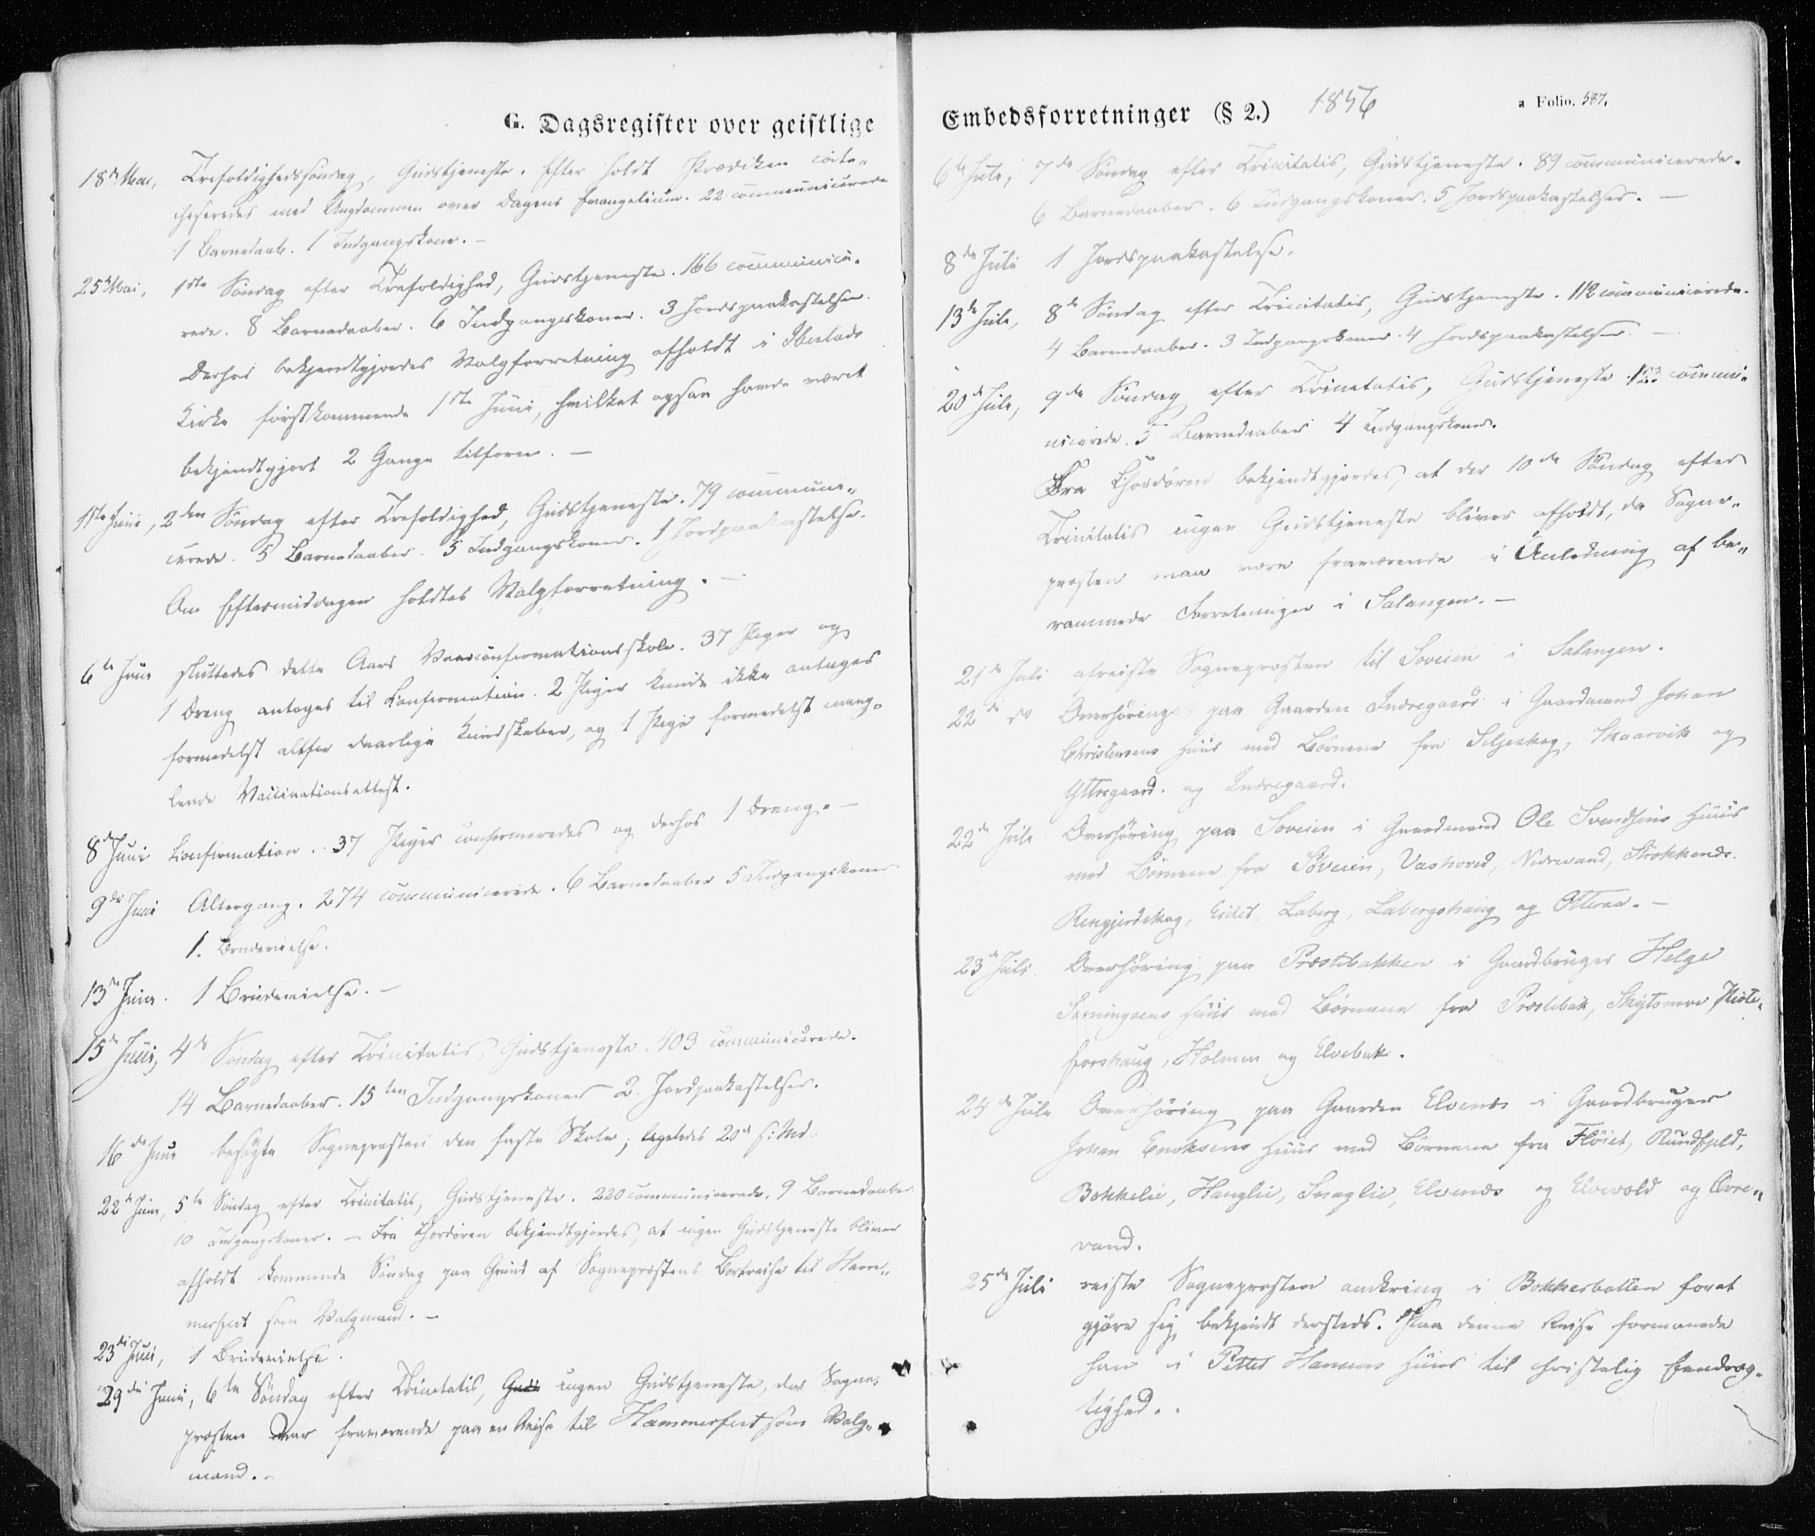 G. Dagsregister over geistlige
18de Mai, Trefoldighedssøndag, Gudstjeneste. Efter holdt Prædiken cate-
chiseredes med Ungdommen over Dagens Evangelium. 22 communicerede
1 Barnedaab. 1 Indgangskone. —
25de Mai, 1ste Søndag efter Trefoldighed, Gudstjeneste. 166 communice-
rede. 8 Barnedaaber. 6 Indgangskoner. 3 Jordspaakastelser.
Derhos bekjendtgjordes Valgforretning afholdt i Ibestads
Kirke førstkommende 1ste Juni, hvilket ogsaa havde været
bekjendtgjort 2 Gange tilforn. —
1ste Juni, 2den Søndag efter Trefoldighed, Gudstjeneste. 79 communi-
cerede. 5 Barnedaaber. 5 Indgangskoner. 1 Jordpaakastelse.
Om Eftermiddagen holdtes Valgforretning. —
6te Juni sluttedes dette Aars Vaarconfirmationsskole. 37 Piger og
1 Dreng antoges til Confirmation. 2 Piger kunde ikke antages
formedelst altfor daarlige Kundskaber, og 1 Pige formedelst mang-
lende Vaccinationsattest.
8de Juni Confirmation. 37 Piger confirmeredes og derhos 1 Dreng. —
9de Juni Altergang. 274 communicerede. 6 Barnedaaber 5 Indgangskoner
1. Brudevielse.
13de Juni. 1 Brudevielse. —
15de Juni, 4de Søndag efter Trinitatis, Gudstjeneste. 403 communicerede.
14 Barnedaaber. 15ten Indgangskoner 2. Jordpaakastelser.
16de Juni besøgte Sognepræsten den faste Skole; ligeledes 20de s: Md.
22de Juni, 5te Søndag efter Trinitatis, Gudstjeneste. 220 communicerede. 9 Barnedaaber
10 Indgangskoner. — Fra Chordøren bekjendtgjordes, at ingen Gudstjeneste bliver
afholdt kommende Søndag paa Grund af Sognepræstens Bortreise til Ham-
merfest som Valgmand. —
23de Juni, 1 Brudevielse.
29de Juni, 6te Søndag efter Trinitatis, Guds ingen Gudstjeneste, da Sogne-
præsten var fraværende paa en Reise til Hammerfest som Valg-
mand. —
Embedsforretninger (§ 2.) 1856
a Folio. 567.
6te Juli, 7de Søndag efter Trinitatis, Gudstjeneste. 89 communicerede.
6 Barnedaaber. 6 Indgangskoner. 5 Jordspaakastelser. —
8de Juli 1 Jordspaakastelse.
13de Juli, 8de Søndag efter Trinitatis, Gudstjeneste. 112 communicerede.
4 Barnedaaber. 3 Indgangskoner. 4 Jordspaakastelser. —
20de Juli, 9de Søndag efter Trinitatis, Gudstjeneste. 123 commu-
nicerede. 5 Barnedaaber 4 Indgangskoner.
Fra Chordøren bekjendtgjordes, at der 10de Søndag efter
Trinitatis ingen Gudstjeneste bliver afholdt, da Sogne-
præsten maa være fraværende i Anledning af be-
rammede Forretninger i Salangen. —
21de Juli afreiste Sognepræsten til Soveien i Salangen.
22de do Overhøring paa Gaarden Indregaard i Gaardmand Johan
Christensens Huus med Børnene fra Seljeskog, Skaarvik og
Yttregaard. og Indregaard.
22de Juli Overhøring paa Soveien i Gaardmand Ole Svendsens Huus
med Børnene fra Søveien, Vashoved, Nervand, Strokkende
Rengjerdskog, Eidet, Laberg, Labergshaug og Otteraa. —
23de Juli. Overhøring paa Præstbakken i Gaardbruger Helge
Hus med Børnene fra Præstebak, Skytsmoe
forshaug, Holmen og Elvebak.
24de Juli Overhøring paa Gaarden Elvenes i Gaardbruger
Johan Enoksens Huus med Børnene fra Fløiet, Rundfjeld,
Bokkelie, Hanglie, Snaglie, Elvenes og Elvevold og Øvre-
vand.
25de Juli reiste Sognepræsten omkring i Bokkesbotten forat
gjøre sig bekjendt dersteds. Paa denne Reise formanede
han i Petter Hansens Huus til christelig Eendræg-
tighed.